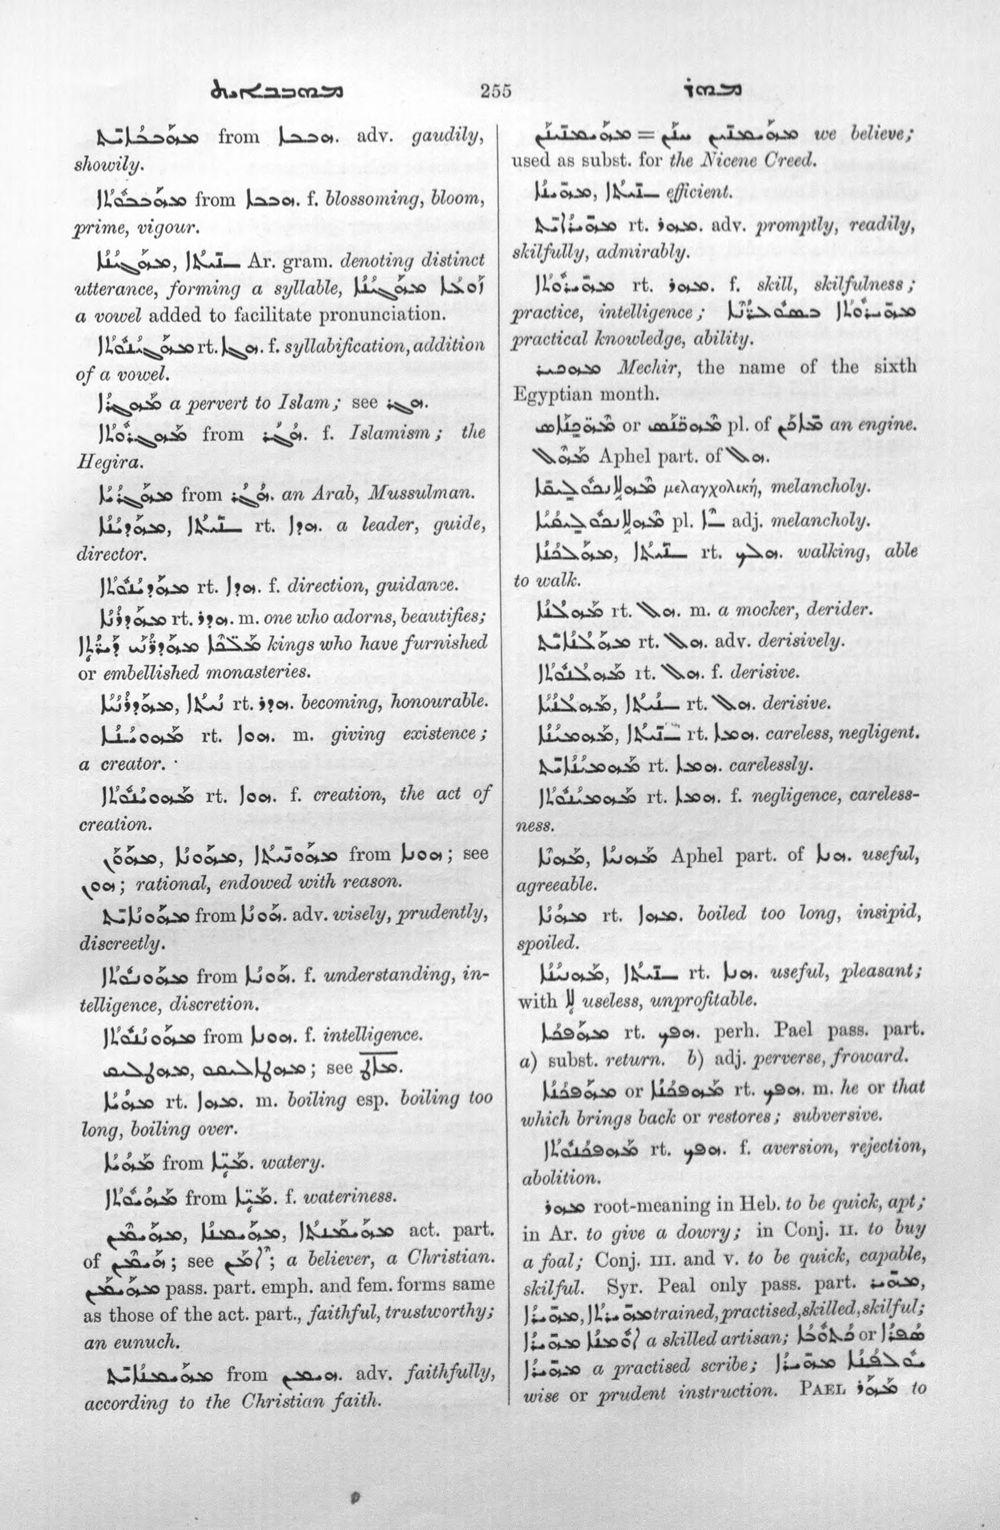 ܡܗܒܒܐܝܬ 255 ܡܗܪ
ܡܗܒܒܐܝܬ from ܗܒܒܐ. adv. gaudily,
showily.
ܡܗܒܒܘܬܐ from ܗܒܒܐ. f. blossoming, bloom,
prime, vigour.
ܡܗܓܝܢܐ, ܝܬܐ— Ar. gram. denoting distinct
utterance, forming a syllable, ܙܘܥܐ ܡܗܓܝܢܐ
a vowel added to facilitate pronunciation.
ܡܗܓܝܢܘܬܐ rt. ܗܓܐ. f. syllabification, addition
of a vowel.
ܡܗܓܪܐ a pervert to Islam; see ܗܓܪ.
ܡܗܓܪܘܬܐ from ܗܓܪ. f. Islamism; the
Hegira.
ܡܗܓܪܝܐ from ܗܓܪ. an Arab, Mussulman.
ܡܗܕܝܢܐ, ܝܬܐ— rt. ܗܕܐ. a leader, guide,
director.
ܡܗܕܝܢܘܬܐ rt. ܗܕܐ. f. direction, guidance.
ܡܗܕܪܢܐ rt. ܗܕܪ. m. one who adorns, beautifies;
ܡܠܟܐ ܡܗܕܪܢܝ ܕܝܪܬܐ kings who have furnished
or embellished monasteries.
ܡܗܕܪܢܝܐ, ܢܝܬܐ rt. ܗܕܪ. becoming, honourable.
ܡܗܘܝܢܐ rt. ܗܘܐ. m. giving existence;
a creator.
ܡܗܘܝܢܘܬܐ rt. ܗܘܐ. f. creation, the act of
creation.
ܡܗܘܢ, ܡܗܘܢܐ, ܡܗܘܢܝܬܐ from ܗܘܢܐ; see
ܗܘܢ; rational, endowed with reason.
ܡܗܘܢܐܝܬ from ܗܘܢܐ. adv. wisely, prudently,
discreetly.
ܡܗܘܢܘܬܐ from ܗܘܢܐ. f. understanding, in-
telligence, discretion.
ܡܗܘܢܢܘܬܐ from ܗܘܢܐ. f. intelligence.
see
ܡܗܝܐ rt. ܡܗܐ. m. boiling esp. boiling too
long, boiling over.
ܡܗܝܐ from ܡܝܐ. watery.
ܡܗܝܘܬܐ from ܡܝܐ. f. wateriness.
ܡܗܝܡܢ, ܡܗܝܡܢܐ, ܡܗܝܡܢܬܐ act. part.
of ܗܝܡܢ; see ܐܡܢ; a believer, a Christian.
ܡܗܝܡܢ pass. part. emph. and fem. forms same
as those of the act. part., faithful, trustworthy;
an eunuch.
ܡܗܝܡܢܐܝܬ from ܗܝܡܢ. adv. faithfully,
according to the Christian faith.
ܡܗܝܡܢܝܢܢ = ܡܗܝܡܢܝܢ ܚܢܢ we believe;
used as subst. for the Nicene Creed.
ܡܗܝܢܐ, ܝܬܐ— efficient.
ܡܗܝܪܐܝܬ rt. ܡܗܪ. adv. promptly, readily,
skilfully, admirably.
ܡܗܝܪܘܬܐ rt. ܡܗܪ. f. skill, skilfulness;
practice, intelligence; ܡܗܝܪܘܬܐ
practical knowledge, ability.
ܡܗܟܝܪ Mechir, the name of the sixth
Egyptian month.
or pl. of an engine.
ܡܗܠ Aphel part. of ܗܠ.
μελαγχολική, melancholy.
pl. adj. melancholy.
ܡܗܠܟܢܐ, ܝܬܐ— rt. ܗܠܟ. walking, able
to walk.
ܡܗܠܢܐ rt. ܗܠ. m. a mocker, derider.
ܡܗܠܢܐܝܬ rt. ܗܠ. adv. derisively.
ܡܗܠܢܘܬܐ rt. ܗܠ. f. derisive.
ܡܗܠܢܝܐ, ܢܝܬܐ— rt. ܗܠ. derisive.
ܡܗܡܝܢܐ, ܝܬܐ— rt. ܗܡܐ. careless, negligent.
ܡܗܡܝܢܐܝܬ rt. ܗܡܐ. carelessly.
ܡܗܡܝܢܘܬܐ rt. ܗܡܐ. f. negligence, careless-
ness.
ܡܗܢܐ, ܡܗܢܝܐ Aphel part. of ܗܢܐ. useful,
agreeable.
ܡܗܢܐ rt. ܡܗܐ. boiled too long, insipid,
spoiled.
ܡܗܢܝܢܐ, ܝܬܐ— rt. ܗܢܐ. useful, pleasant;
with ܠܐ useless, unprofitable.
ܡܗܦܟܐ rt. ܗܦܟ. perh. Pael pass. part.
a) subst. return. b) adj. perverse, froward.
ܡܗܦܟܢܐ or ܡܗܦܟܢܐ rt. ܗܦܟ. m. he or that
which brings back or restores; subversive.
ܡܗܦܟܢܘܬܐ rt. ܗܦܟ. f. aversion, rejection,
abolition.
ܡܗܪ root-meaning in Heb. to be quick, apt;
in Ar. to give a dowry; in Conj. II. to buy
a foal; Conj. III. and V. to be quick, capable,
skilful. Syr. Peal only pass. part. ܡܗܝܪ,
ܡܗܝܪܐ, ܡܗܝܪܬܐ trained, practised, skilled, skilful;
ܐܘܡܢܐ ܡܗܝܪܐ a skilled artisan; ܟܬܘܒܐ or ܣܦܪܐ
ܡܗܝܪܐ a practised scribe; ܝܘܠܦܢܐ ܡܗܝܪܐ
wise or prudent instruction. PAEL ܡܗܪ to